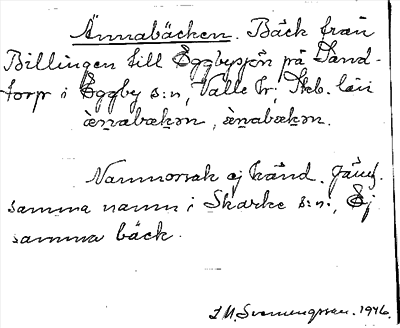 Ännabäcken. Bäck från
Billingen till Eggbysjön på Sand-
torp i Eggby s:n, Valle hr, Skb. län
ànnabækən, ànabækən.
Namnorsak ej känd. Jämf.
samma namn i Skarke s:n., Ej
samma bäck.
1946.